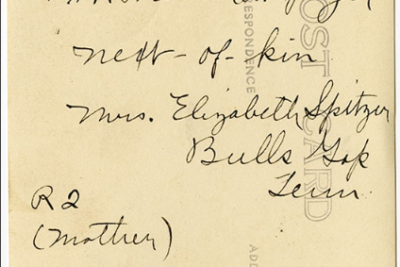 next-of-kin
Mrs. Elizabeth Spitzer
Bulls Gap
Tenn
R2
(Mother)
POST CARD
CORRESPONDENCE